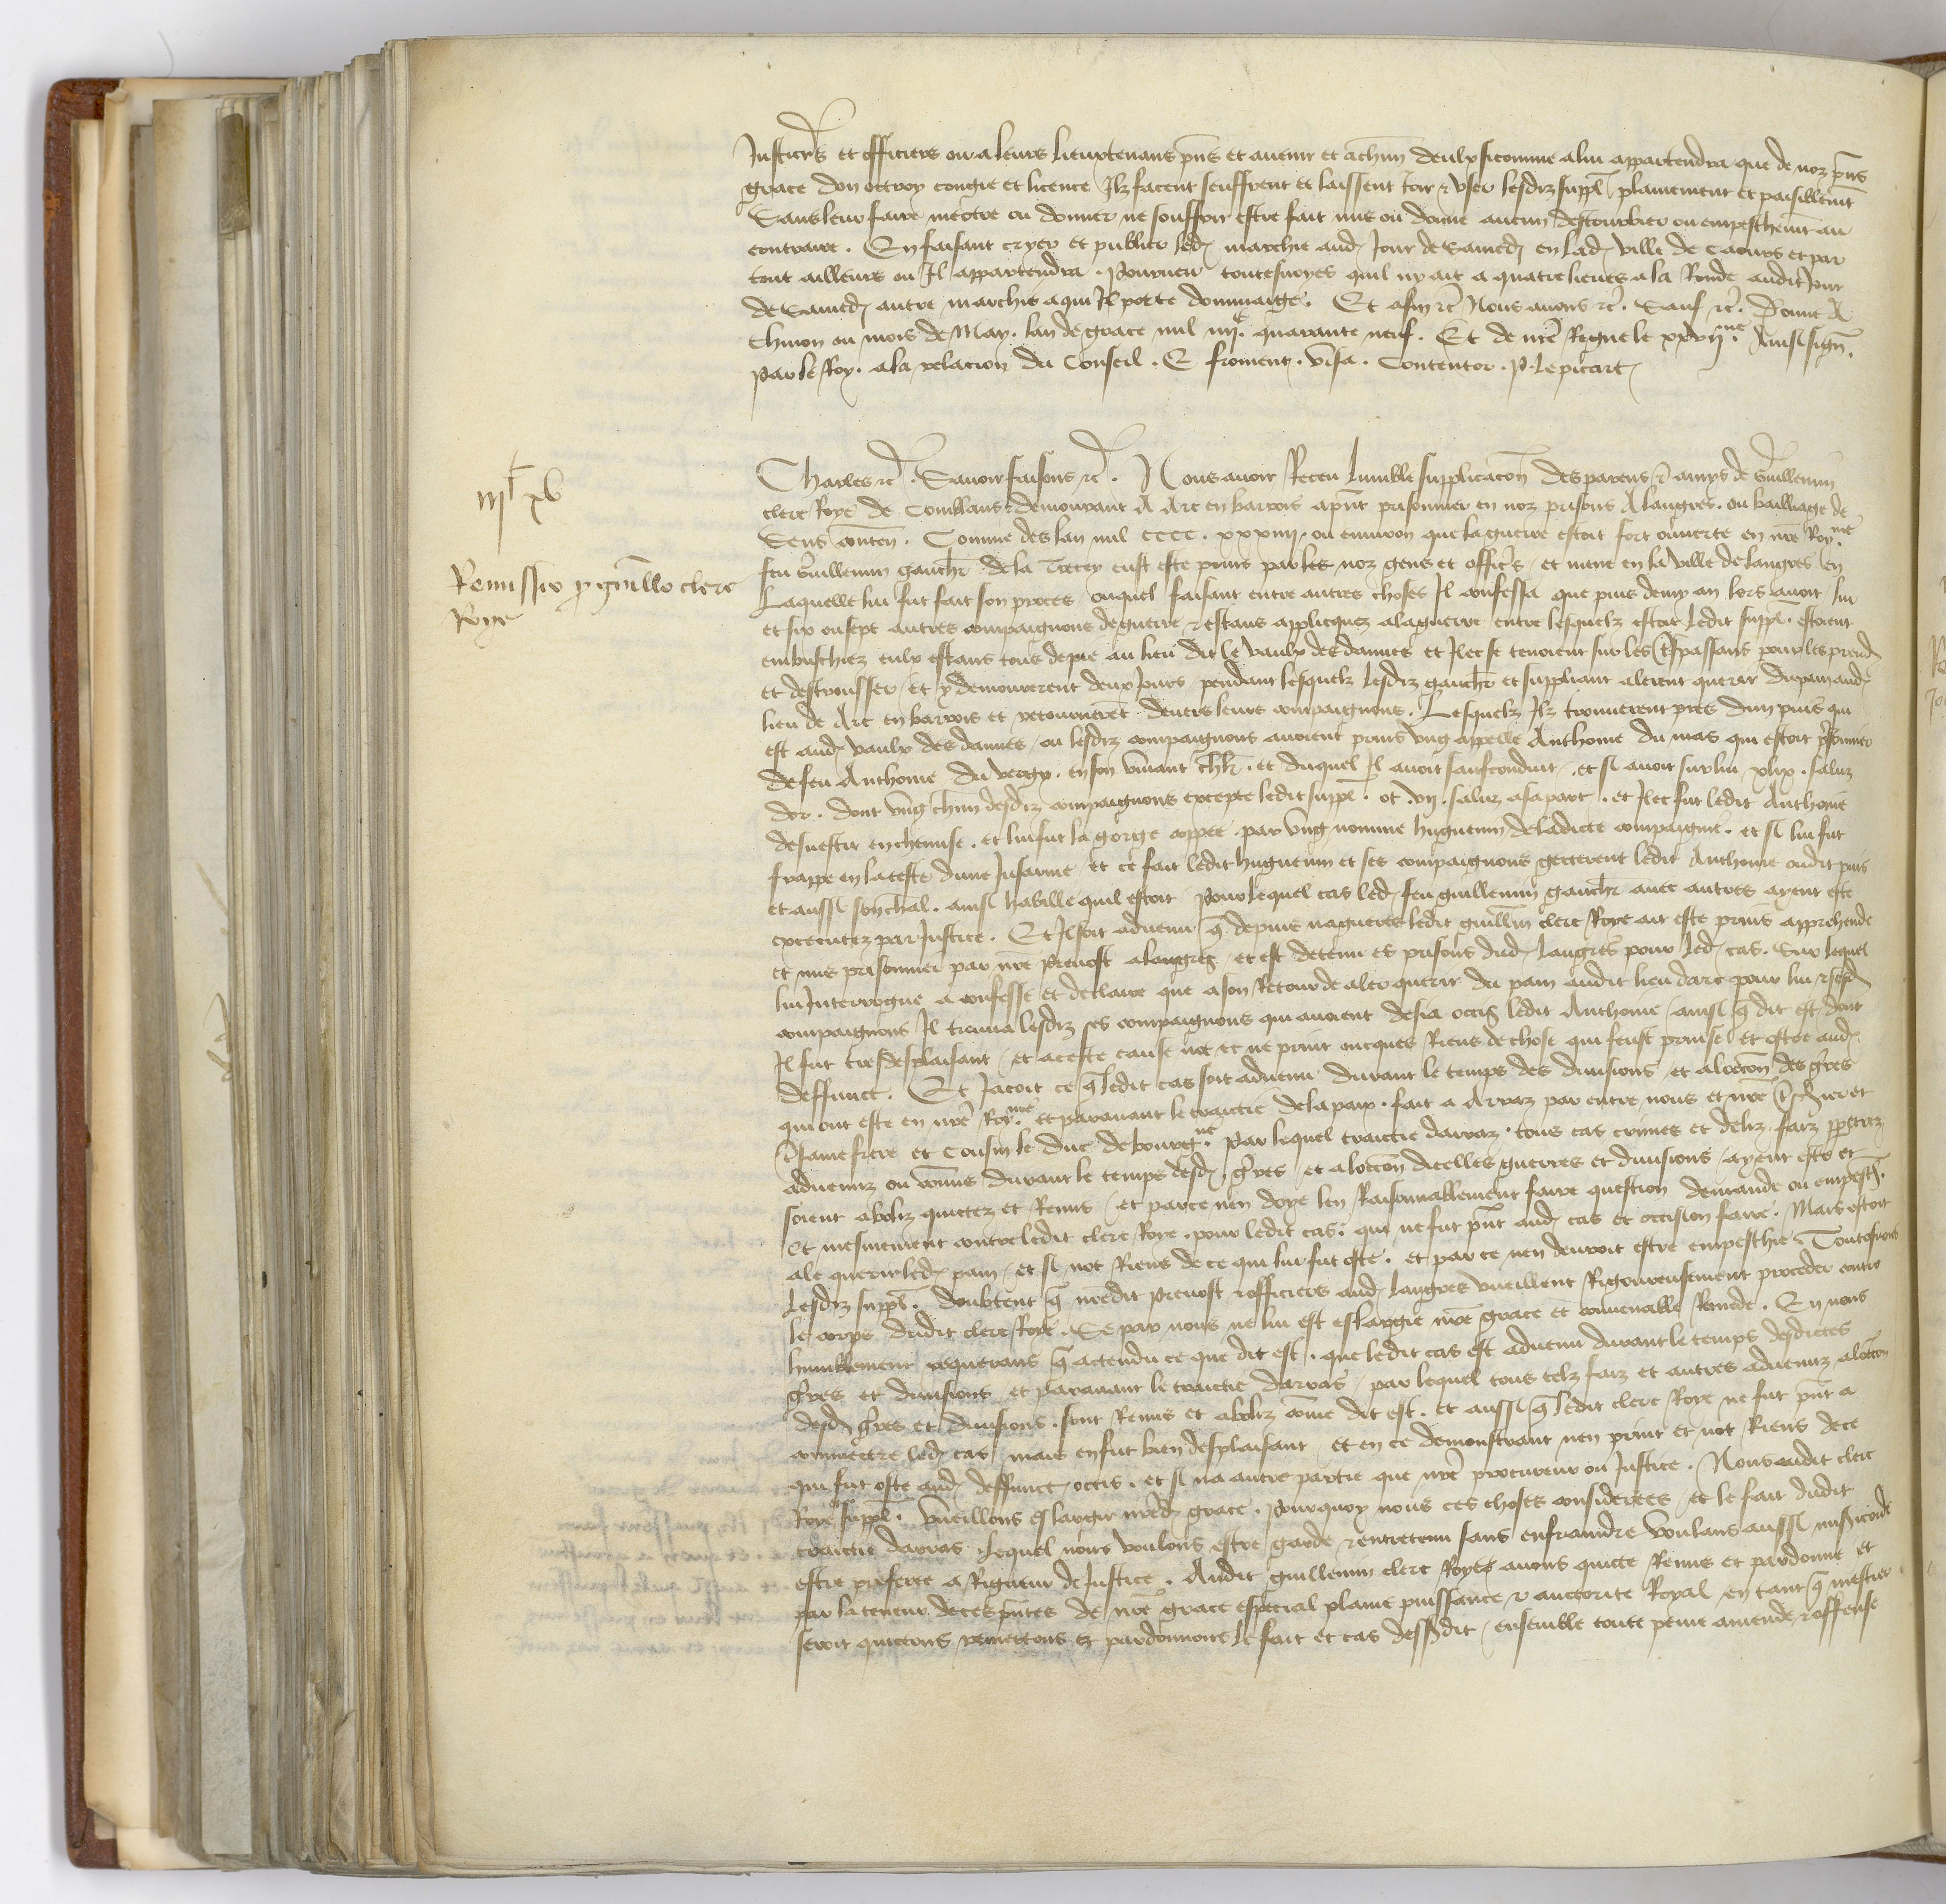 Justiciers et officiers ou a leurs lieuxtenans pñs et auenir et a chũn deulx sicomme a lui appartendra que de noz pñs
grace don octroy congie et licence Ilz facent seuffrent et laissent joir et vser lesdiz supplͥ plainement et paisiblemt
Sans leur faire mectre ou donner ne souffrir estre fait mis ou donne aucun destourbier ou empeschemt au
contraire . En faisant cryer et publier led marchie aud Jour de samed en lad ville de Caours et par
tout ailleurs ou Il appartendra . Pourueu toutesuoyes quil ny ait a quatre lieues a la Ronde audit Jour
de samed autre marchie a qui Il porte dommaige . Et afin ꝛc̃ Nous auons ꝛc̃ . Sauf ꝛc̃ . Donne A
Chinon ou mois de May . lan de grace mil iiijc quarante neuf . Et de nrẽ Regne le xxvijme . Ainsi sign̄ .
Par le Roy . a la relacion du Conseil . E froment . visa . Contentor . P. le picart
iijc xv
Remissio p guillo clerc
Roye
Charles ꝛc̃ . Sauoir faisons ꝛc̃ . Nous auoir Receu lumble supplicacõn des parens et amys de Guillemin
clerc Roye de Conblans demourant A Arc en barrois a pñt prisonnier en noz prisons A langres . ou bailliage de
Sens conten . Comme des lan mil cccc . xxxiiij . ou enuiron que la guerre estoit fort ouuerte en nrẽ Royme
feu Guillemin gauchͥ de la Trecey eust este prins par les noz gens et officrs et mene en la ville de langres en
Laquelle lui fut fait son proces ouquel faisant entre autres choses Il confessa que puis demy an lors auoit lui
et six ou sept autres compaignons de guerre et estans applicquez a la guerre entre lesquelz estoit ledit supplͥ . estoient
embuschiez eulx estans tous de pie au lieu dit le vaulx des dames et Ilec se tenoient sur les tr̃spassans pour les prend
et destrousser et y demourerent deux Jours pendant lesquelz lesdiz gauchͥ et suppliant alerent querir du pain aud
lieu de Arc en barrois et retournerẽt deuers leurs compaignons . Lesquelz Ilz trouuerent pres dun puis qui
est aud vaulx des dames ou lesdiz compaignons auoient prins vng appelle Anthoine du mas qui estoit pr̃sonnier
de feu Anthoine du vergy . en son viuant chlr̃ . et duquel Il auoit saufconduit . et si auoit sur lui xlix . saluz
dor . dont vng chũn desdiz compaignons excepte ledit supplͥ . ot . vij . saluz a sa part . et Ilec fut ledit Anthoine
desuestu en chemise . et lui fut la gorge coppee par vng nomme huguenin de ladicte compaignie . et si lui fut
frappe en la teste dune Jusarme et ce fait ledit huguenin et ses compaignons getterent ledit Anthoine oudit puis
et aussi son chal . ainsi habille quil estoit Pour lequel cas led feu guillemin gauchͥ auec autres ayent este
executez par Justice . Et Il soit aduenu q̃ depuis nagueres ledit guillm̃ clerc Roye ait este prins apprehende
et mis prisonnier par nrẽ Preuost a langres et est detenu es prisons dud langres pour led cas . Sur lequel
lui Interrogue a confesse et declaire que a son Retour de aler querir du pain audit lieu darc pour lui et sesd
compaignons Il trouua lesdiz ses compaignons qui auoient desia occis ledit Anthoine ainsi q̃ dit est dont
Il fut tresdesplaisant et a ceste cause not et ne print oncques Riens de chose qui feust prinse et ostee aud
deffunct . Et Jacoit ce q̃ ledit cas soit aduenu durant le temps des diuisions et a loccõn des grẽs
qui ont este en nrẽ Royme et parauant le traictie de la paix . fait a Arraz par entre nous et nrẽ tr̃schier et
tr̃same frere et cousin le duc de bourgne . Par lequel traictie darraz . tous cas crimes et deliz faiz perpetrez
aduenuz ou cõmis durant le temps desd grẽs et a loccõn dicelles guerres et diuisions ayent este et
soient aboliz quictez et Remis et par ce nen doye len Raisonnablement faire question demande ou empesch .
Et mesmement contre ledit clerc Roye . pour ledit cas . qui ne fut pñt aud cas et occision faire . Mais estoit
ale querir led pain et si not Riens de ce qui lui fut oste . et par ce nen deuroit estre empeschie Toutesuoies
Lesdiz supplͥ . doubtent q̃ nredit Preuost et officiers aud langres vueillent Rigoureusement proceder contre
le corps dudit clerc Roye . Se par nous ne lui est eslargie nrẽ grace et conuenable Remede . En nous
humblement requerans q̃ actendu ce que dit est . que ledit cas est aduenu durant le temps desdictes
grẽs et diuisions et parauant le traictie darras par lequel tous telz faiz et autres aduenuz a loccõn
desd grẽs et diuisions . sont Remis et aboliz cõme dit est . et aussi q̃ ledit clerc Roye ne fut pñt a
commectre led cas mais en fut bien desplaisant et en ce demonstrant nen print et not Riens de ce
qui fut oste aud deffunct occis . et si na autre partie que nrẽ procureur ou Justice . Nous audit clerc
Roye supplͥ . vueillons eslargir nred grace . Pourquoy nous ces choses considerees et le fait dudit
traictie darras Lequel nous voulons estre garde et entretenu sans enfraindre voulans aussi mi͠sicorde
estre preferee a Rigueur de Justice . Audit guillemin clerc Roye auons quicte Remis et pardonne et
par la teneur de ces pñtes de nrẽ grace especial plaine puissance et auctorite Royal en tant q̃ mestier
seroit quictons remettons et pardonnons le fait et cas dessusdit ensemble toute peine amende et offense